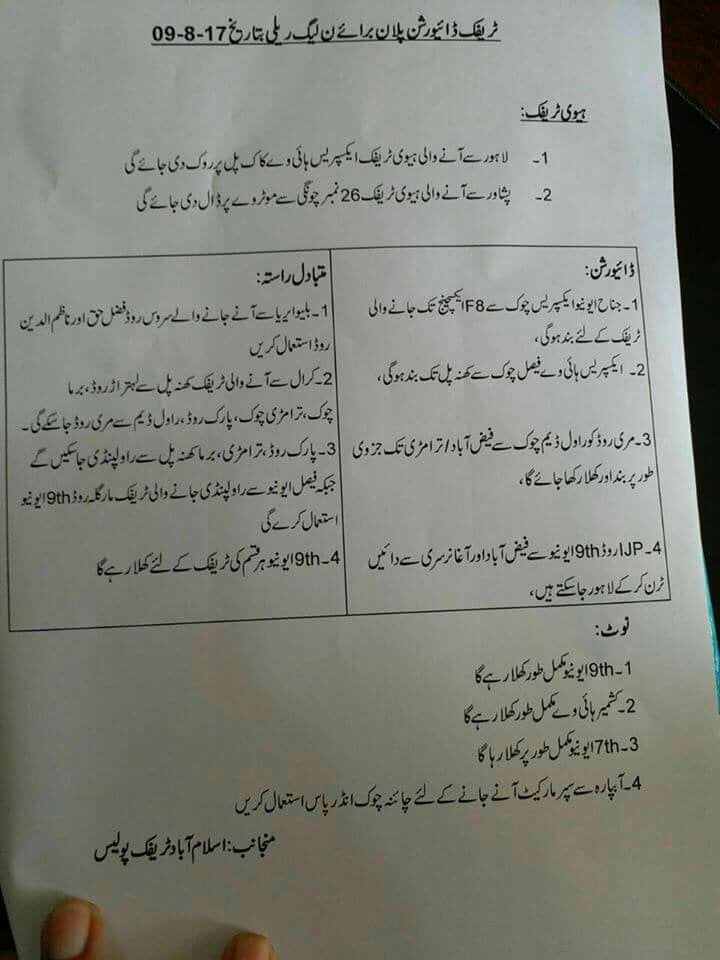 ٹریفک ڈائیورشن پلان برائے ن لیگ ریلی بتاریخ 17-8-09
ہیوی ٹریفک:
1۔ لاہور سے آنے والی ہیوی ٹریفک ایکسپریس ہائی وے کاک پل پر روک دی جائے گی
2۔ پشاور سے آنے والی ہیوی ٹریفک 26 نمبر چونگی سے موٹر وے پر ڈال دی جائے گی
ڈائیورشن:
1۔ جناح ایونیو ایکسپریس چوک سے F8 ایکسچینج تک جانے والی
ٹریفک کے لئے بند ہوگی،
2۔ ایکسپریس ہائی وے فیصل چوک سے کھنہ پل تک بند ہوگی،
3۔ مری روڈ کو راول ڈیم چوک سے فیض آباد/ترامڑی تک جزوی
طور پر بند اور کھلا رکھا جائے گا،
4۔ IJP روڈ 9th ایونیو سے فیض آباد اور آغا نرسری سے دائیں
ٹرن کر کے لاہور جا سکتے ہیں،
متبادل راستہ:
1۔ بلیو ایریا سے آنے جانے والے سروس روڈ فضل حق اور ناظم الدین
روڈ استعمال کریں
2۔ کرال سے آنے والی ٹریفک کھنہ پل سے لہتراڑ روڈ، برما
چوک، ترامڑی چوک، پارک روڈ، راول ڈیم سے مری روڈ جا سکے گی۔
3۔ پارک روڈ، ترامڑی، برما کھنہ پل سے راولپنڈی جا سکیں گے
جبکہ فیصل ایونیو سے راولپنڈی جانے والی ٹریفک مارگلہ روڈ 9th ایونیو
استعمال کرے گی
4۔ 9th ایونیو ہر قسم کی ٹریفک کے لئے کھلا رہے گا
نوٹ:
1۔ 9th ایونیو مکمل طور کھلا رہے گا
2۔ کشمیر ہائی وے مکمل طور کھلا رہے گا
3۔ 7th ایونیو مکمل طور پر کھلا رہا گا
4۔ آبپارہ سے سپر مارکیٹ آنے جانے کے لئے چائنہ چوک انڈر پاس استعمال کریں
منجانب: اسلام آباد ٹریفک پولیس